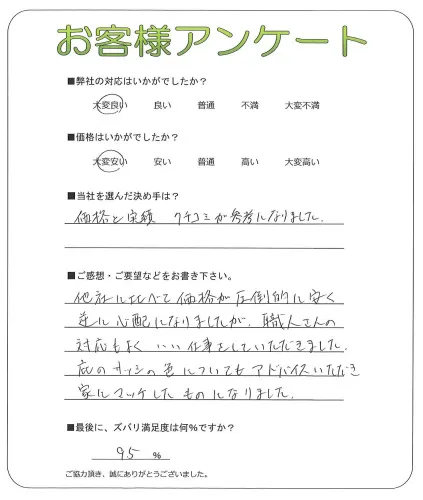 お客様アンケート
■弊社の対応はいかがでしたか？
大変良い 良い 普通 不満 大変不満
■価格はいかがでしたか？
大変安い 安い 普通 高い 大変高い
■当社を選んだ決め手は？
価格と実績 クチコミが参考になりました.
■ご感想・ご要望などをお書き下さい。
他社に比べて価格が圧倒的に安く
逆に心配になりましたが、職人さんの
対応もよく いい仕事をしていただきました.
庇のサッシの色についてもアドバイスいただき
家にマッチしたものになりました.
■最後に、ズバリ満足度は何％ですか？
95 ％
ご協力頂き、誠にありがとうございました。